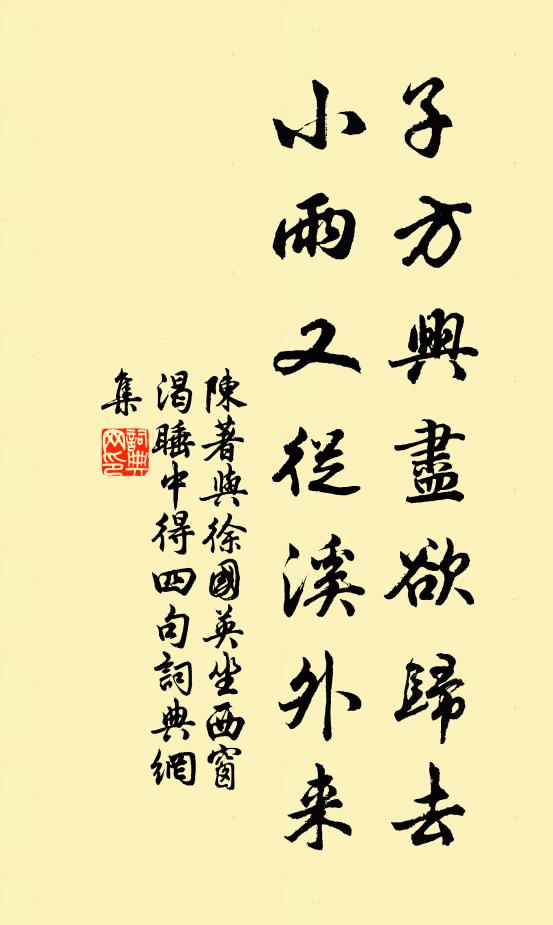 子方興盡欲歸去
小雨又從溪外来
陳著與徐國英坐西窗
渴睡中得四句詞典網
集
詞典网印